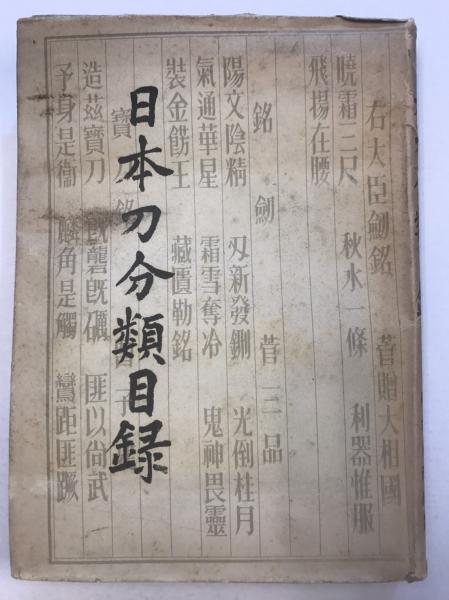 日本刀分類目録
右大臣劔銘 菅贈大相國
曉霜三尺 秋水一條 利器惟服
飛揚在腰
銘劔 菅三品
陽文陰精 刄新發鉶 光倒桂月
氣通華星 霜雪奪冷 鬼神畏靈
裝金餝王 藏匵勒銘
寶刀銘
造茲寶刀 旣礱旣礪 匪以尙武
予身是衞 麟角是觸 鸞距匪蹶